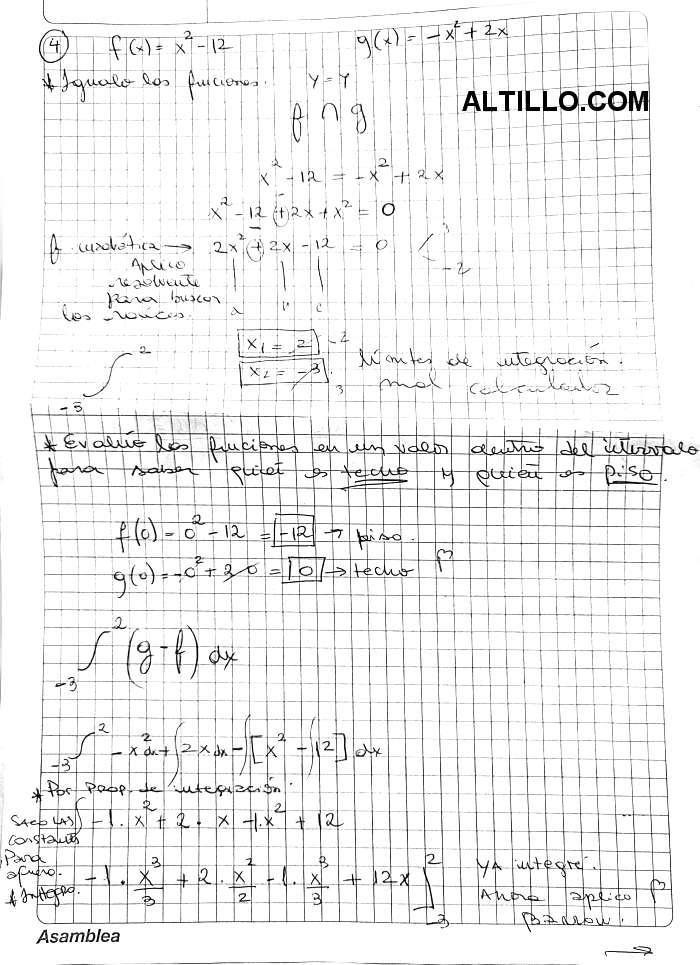 ④ f(x) = x² - 12    g(x) = -x² + 2x
* Igualo las funciones.    y = y
ALTILLO.COM
f ∩ g
x² - 12 = -x² + 2x
x² - 12 (+) 2x + x² = 0
-
f cuadrática → 2x² (+) 2x - 12 = 0 < 3
-2
Aplico
resolvente
para buscar
los raíces.
a b c
x₁ = 2    -2
x₂ = -3    3
límites de integración.
mal calculados
∫ 2
-3
* Evalúo las funciones en un valor dentro del intervalo
para saber quién es techo y quién es piso.
f(0) = 0² - 12 = -12 → piso.
g(0) = -0² + 2·0 = 0 → techo
-3 ∫ 2 (g - f) dx
-3 ∫ 2 -x² dx + ∫ 2x dx - ∫ [x² - ∫ 12] dx
* Por prop. de integración.
Saco las
constantes
Para
afuera.
∫ -1 · x² + 2 · x - 1 · x² + 12
* Integro.
-1 · x³/3 + 2 · x²/2 - 1 · x³/3 + 12x ] 2
-3
Ya integré.
Ahora aplico
Barrow.
Asamblea
→